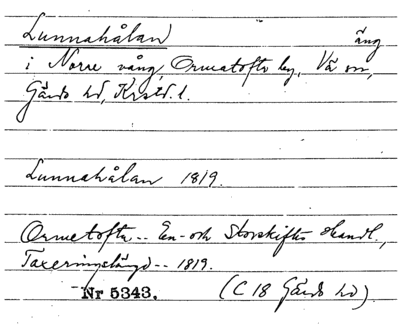 Lunnahålan äng
i Norre vång, Ormatofta by, Vä sn,
Gärds hd, Krstd. l.
Lunnahålan 1819.
Ormetofta -- En- och Storskiftes Handl.,
Taxeringslängd -- 1819.
Nr 5343. (C 18 Gärds hd)